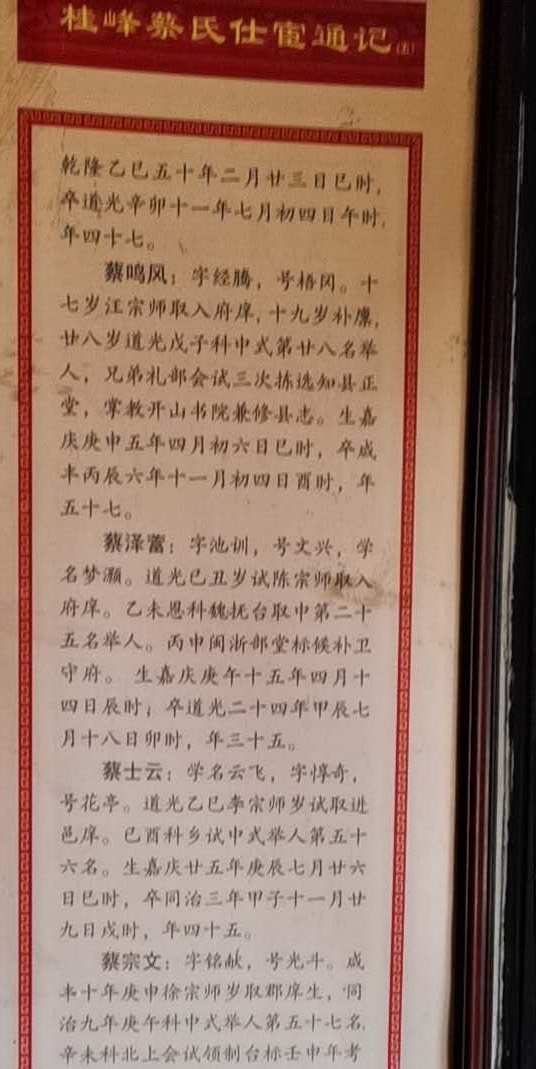 桂峰蔡氏仕宦通记(五)
乾隆乙巳五十年二月廿三日巳时,
卒道光辛卯十一年七月初四日午时,
年四十七。
蔡鸣凤：字经腾，号梧冈。十
七岁汪宗师取入府庠,十九岁补廪,
廿八岁道光戊子科中式第廿八名举
人，兄弟礼部会试三次拣选知县正
堂，掌教开山书院兼修县志。生嘉
庆庚申五年四月初六日巳时，卒咸
丰丙辰六年十一月初四日酉时，年
五十七。
蔡泽霱：字池训，号文兴，学
名梦灏。道光己丑岁试陈宗师取入
府庠。乙未恩科魏抚台取中第二十
五名举人。丙申闽浙部堂标候补卫
守府。 生嘉庆庚午十五年四月十
四日辰时；卒道光二十四年甲辰七
月十八日卯时，年三十五。
蔡士云：学名云飞，字惇奇，
号花亭。道光乙巳李宗师岁试取进
邑庠。己酉科乡试中式举人第五十
六名。生嘉庆廿五年庚辰七月廿六
日巳时，卒同治三年甲子十一月廿
九日戌时，年四十五。
蔡宗文：字铭献，号光斗。咸
丰十年庚申徐宗师岁取郡庠生，同
治九年庚午科中式举人第五十七名,
辛未科北上会试领制台标壬申年考